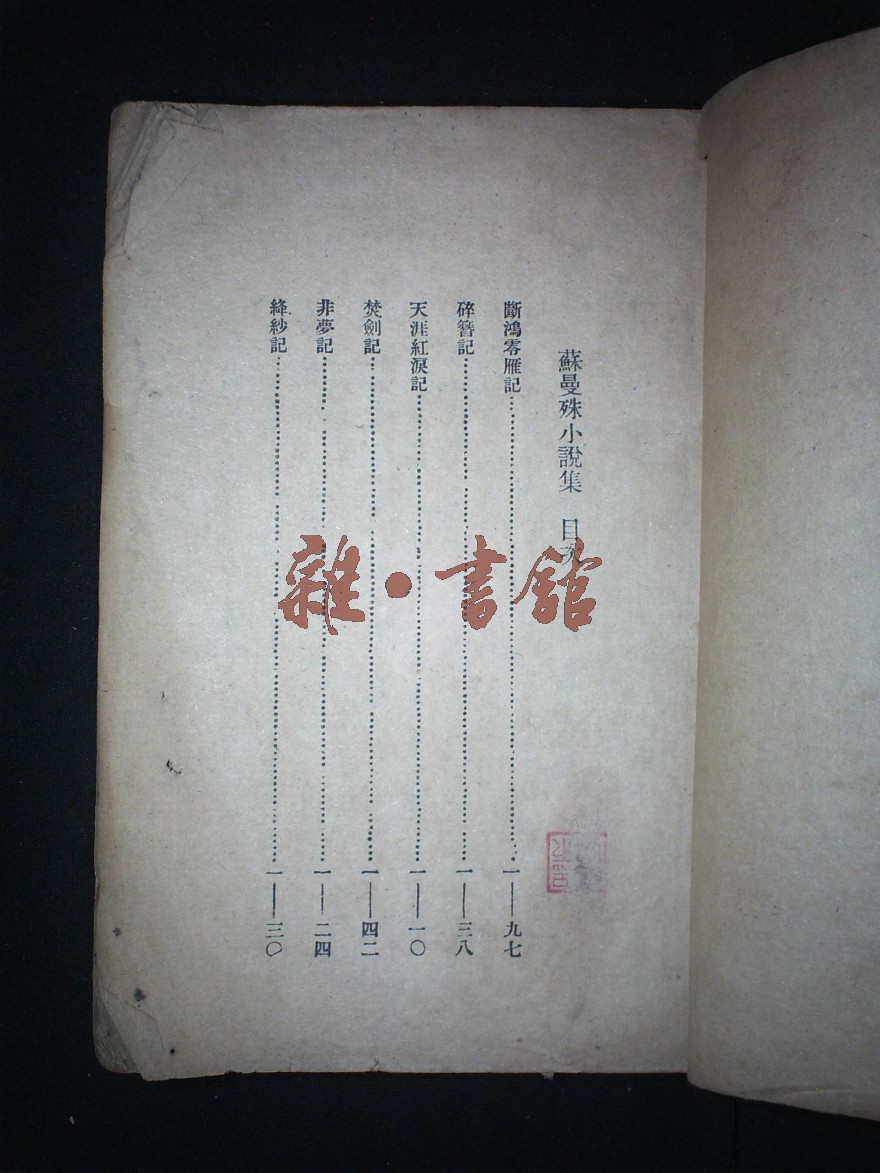 蘇曼殊小說集 目次
斷鴻零雁記……一——九七
碎簪記……一——三八
天涯紅淚記……一——一〇
焚劍記……一——四二
非夢記……一——二四
絳紗記……一——三〇
雜·書館